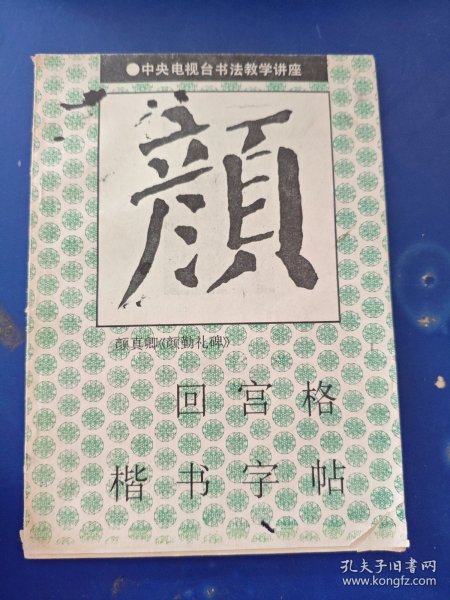 ●中央电视台书法教学讲座
顔
颜真卿《颜勤礼碑》
回宫格
楷书字帖
孔夫子旧书网
www.kongfz.com